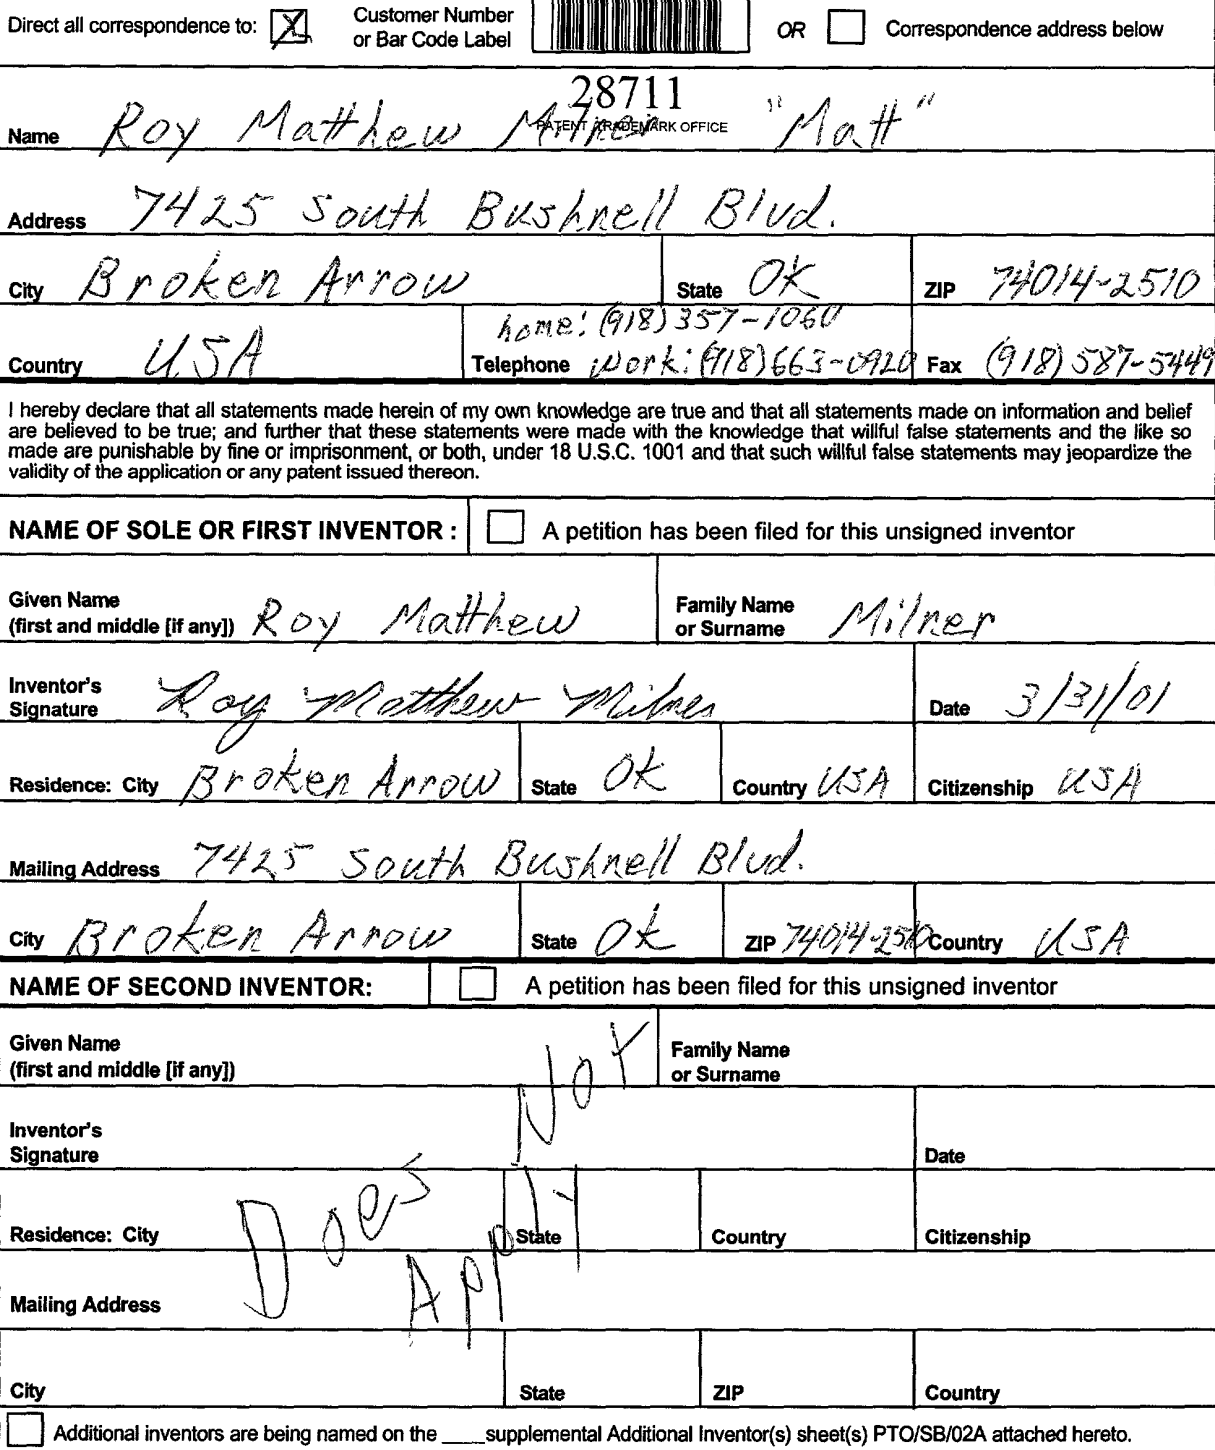 Direct all correspondence to: X Customer Number or Bar Code Label OR Correspondence address below
28711
PATENT TRADEMARK OFFICE
Name Roy Matthew Milner "Matt"
Address 7425 South Bushnell Blvd.
City Broken Arrow State OK ZIP 74014-2510
home: (918) 357-1060
Country USA Telephone work: (918) 663-0920 Fax (918) 587-5449
I hereby declare that all statements made herein of my own knowledge are true and that all statements made on information and belief
are believed to be true; and further that these statements were made with the knowledge that willful false statements and the like so
made are punishable by fine or imprisonment, or both, under 18 U.S.C. 1001 and that such willful false statements may jeopardize the
validity of the application or any patent issued thereon.
NAME OF SOLE OR FIRST INVENTOR : A petition has been filed for this unsigned inventor
Given Name
(first and middle [if any]) Roy Matthew Family Name or Surname Milner
Inventor's
Signature Roy Matthew Milner Date 3/31/01
Residence: City Broken Arrow State OK Country USA Citizenship USA
Mailing Address 7425 South Bushnell Blvd.
City Broken Arrow State OK ZIP 74014-2510 Country USA
NAME OF SECOND INVENTOR: A petition has been filed for this unsigned inventor
Given Name
(first and middle [if any]) Family Name or Surname
Inventor's
Signature Date
Does Not Apply
Residence: City State Country Citizenship
Mailing Address
City State ZIP Country
Additional inventors are being named on the ____supplemental Additional Inventor(s) sheet(s) PTO/SB/02A attached hereto.